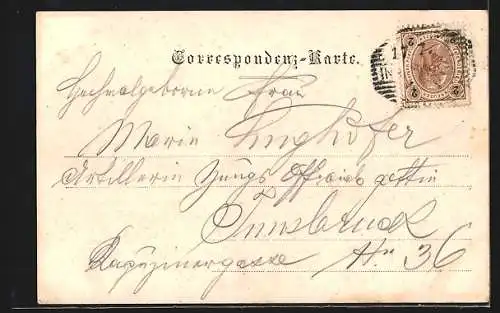 Correspondenz-Karte.
Hochwolgeborne Frau
Marie Lughofer
Artillerie Zeugs Offizials gattin
Innsbruck
Kapuzinergasse Nr 36
2
2 2